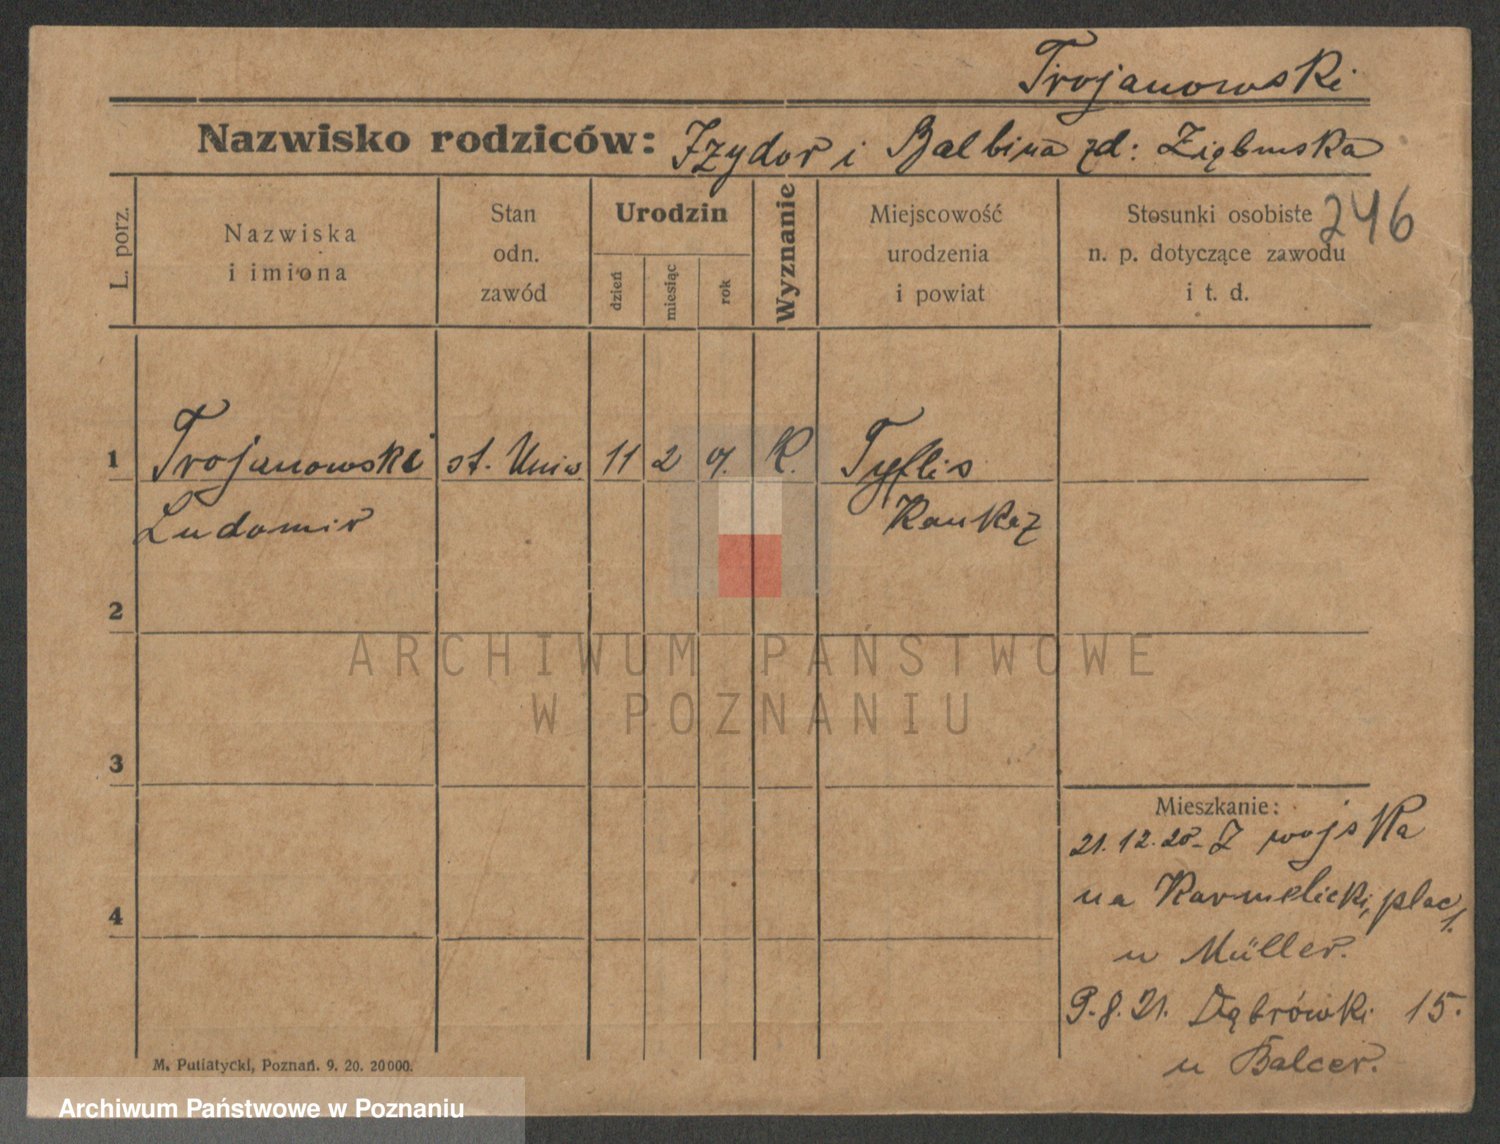 Trojanowski
Nazwisko rodziców: Izydor i Balbina zd: Ziębińska
246
L. porz.
Nazwiska
i imiona
Stan
odn.
zawód
Urodzin
dzień
miesiąc
rok
Wyznanie
Miejscowość
urodzenia
i powiat
Stosunki osobiste
n. p. dotyczące zawodu
i t. d.
1 Trojanowski st. Uniw 11 2 K. Tyflis
Ludomir Kaukaz
2
3
4
ARCHIWUM PAŃSTWOWE
W POZNANIU
Mieszkanie:
21.12.20 - Z wojska
na Karmelicki, plac 1.
u Müller.
9.8.21. Dąbrówki 15.
u Balcer.
M. Putiatycki, Poznań. 9. 20. 20000.
Archiwum Państwowe w Poznaniu